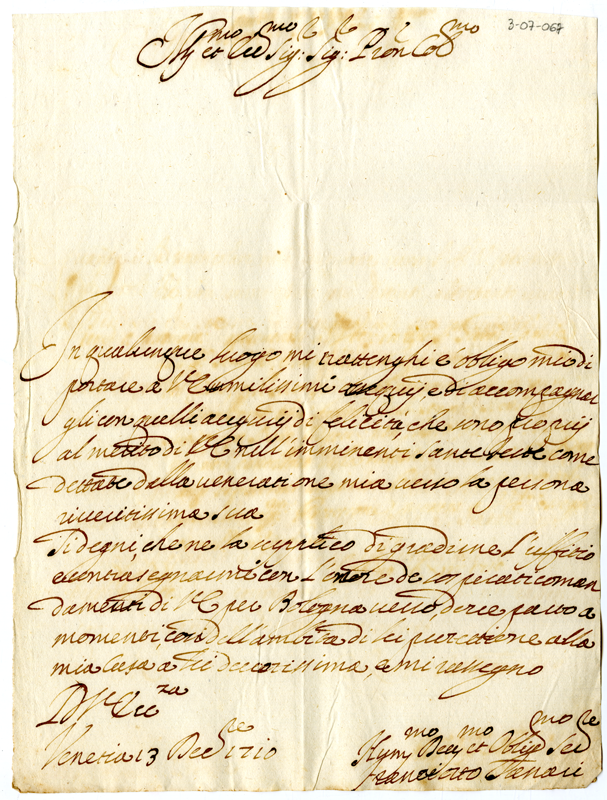 3-07-067
Ill.mo et Ecc.mo Sig.r Sig.r Pron Col.mo
In qualunque luogo mi trattenghi è obligo mio di
portare a V.E. umilissimi ossequij e di accompagnar
gli con quelli di felicità, che sono proprij
al merito di V.E. nell'imminenti Sante feste come
dettate dalla veneratione mia verso la persona
riveritissima sua
Si degni, che ne la supplico di gradirne l'uffitio
e contrasegnarmi con l'onore de sospirati coman
damenti di V.E. per Bologna verso dove parto a
momenti, così dell'amore di lei alla
mia Casa a lei e mi rassegno
Di V. Ecc.za
Venetia 13 Dec.re 1710
Hum.mo Dev.mo et Oblig.mo Ser.re
Francesco Tanari